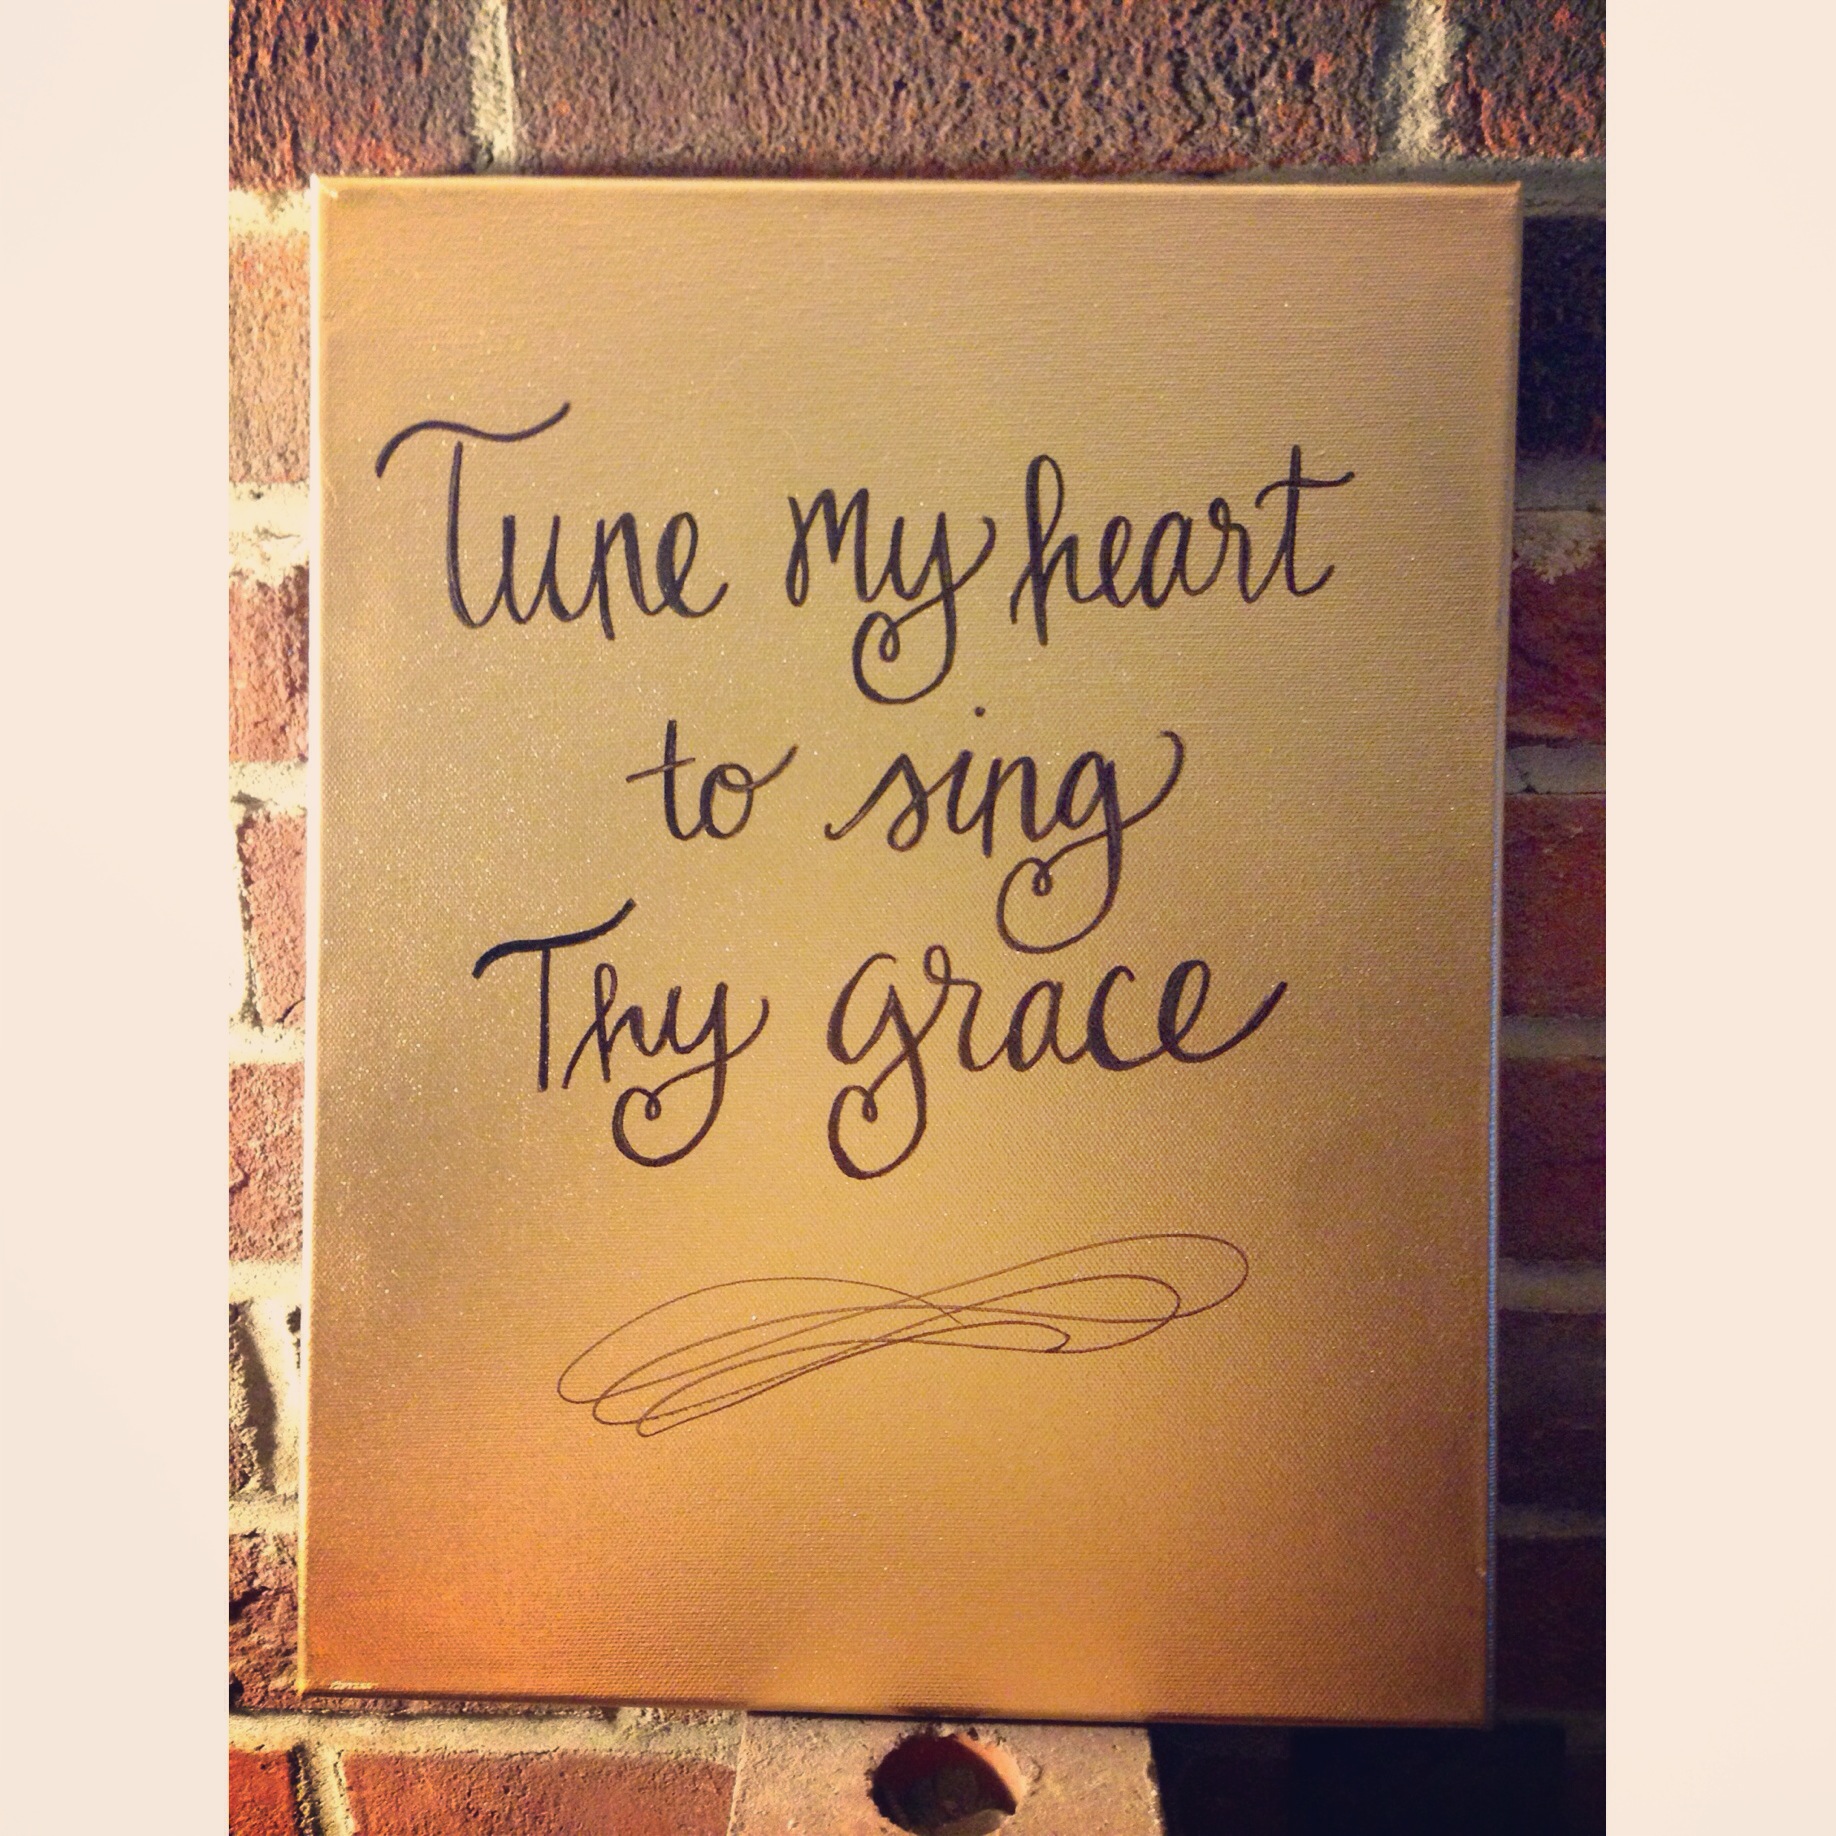 Tune my heart
to sing
Thy grace